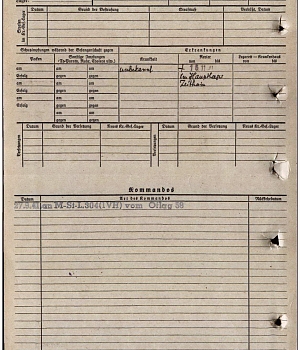 Datum
Grund der Bestrafung
Strafmaß
Verbüßt, Datum
Schutzimpfungen während der Gefangenschaft gegen
Erkrankungen
Pocken
Sonstige Impfungen
(Ty.Paraty, Ruhr, Cholera usw.)
Krankheit
Revier
von bis
Lazarett — Krankenhaus
von bis
am
am
am
unbekannt
Erfolg
gegen
gegen
im Haushaps
am
am
am
Zeithain
Erfolg
gegen
gegen
am
am
am
Erfolg
gegen
gegen
Datum
Grund der Versetzung
Neues Kr.-Gef.-Lager
Datum
Grund der Versetzung
Neues Kr.-Gef.-Lager
Kommandos
Datum
Art des Kommandos
Rückkehrdatum
27.9.41 an M-St-L.304(IVH) vom Oflag 58